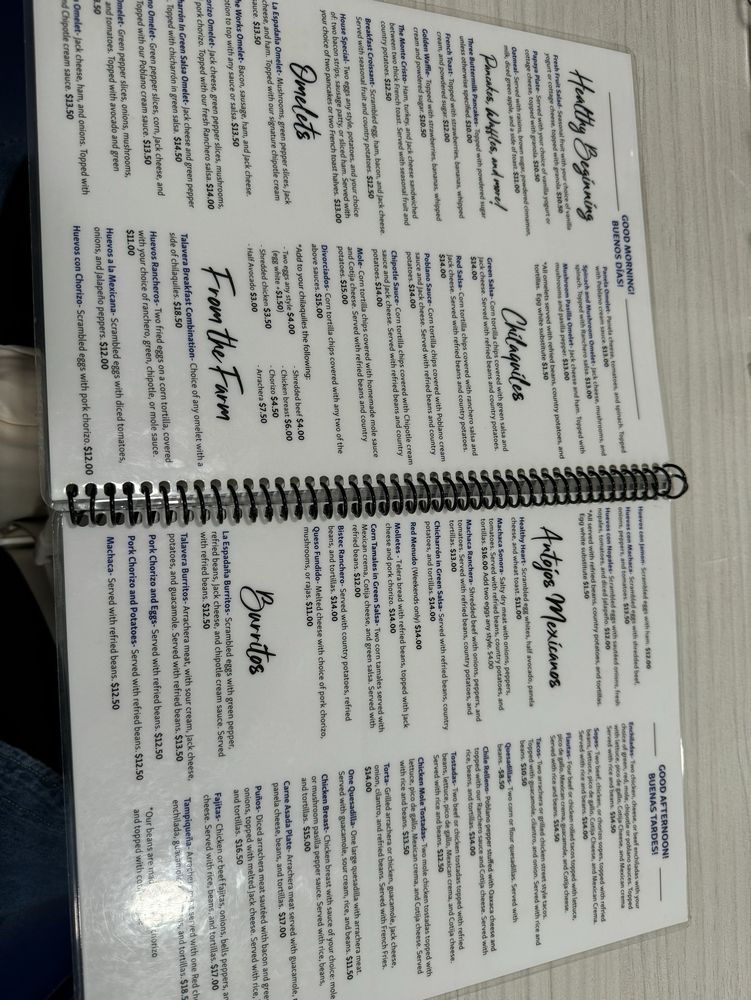 GOOD MORNING!
BUENOS DÍAS!
Healthy Beginning
Fresh Fruit Salad- Seasonal fruit with your choice of vanilla
yogurt or cottage cheese, topped with granola $10.50
Papaya Plate- Served with your choice of vanilla yogurt or
cottage cheese, topped with granola. $10.50
Oatmeal- Served with raisins, brown sugar, powdered cinnamon,
milk, diced green apple, and a side of toast. $11.00
Pancakes, Waffles, and more!
Three Buttermilk Pancakes- Topped with powdered sugar
unless otherwise specified $10.00
French Toast- Topped with strawberries, bananas, whipped
cream, and powdered sugar $12.00
Golden Waffle- Topped with strawberries, bananas, whipped
cream and powdered sugar. $10.50
The Monte Cristo- Ham, turkey, and Jack cheese sandwiched
between two thick French toast. Served with seasonal fruit and
country potatoes. $12.50
Breakfast Croissant- Scrambled egg, ham, bacon, and Jack cheese.
Served with seasonal fruit and country potatoes. $12.50
House Special- Two eggs any style, potatoes, and your choice
of: two bacon strips, sausage patty, or sliced ham. Served with
your choice of two pancakes or two French toast halves. $13.00
Omelets
La Espadaña Omelet- Mushrooms, green pepper slices, Jack
cheese, and ham. Topped with our signature chipotle cream
sauce. $13.50
The Works Omelet- Bacon, sausage, ham, and Jack cheese.
Option to top with any sauce or salsa. $13.50
Chorizo Omelet- Jack cheese, green pepper slices, mushrooms,
pork chorizo. Topped with our fresh Ranchero salsa $14.00
Chicharrón In Green Salsa Omelet- Jack cheese and green pepper
Topped with chicharrón in green salsa. $14.50
Omelet- Green pepper slices, corn, Jack cheese, and
Topped with our Poblano cream sauce. $13.50
Omelet- Green pepper slices, onions, mushrooms,
and tomatoes. Topped with avocado and green
Omelet- Jack cheese, ham, and onions. Topped with
Chipotle cream sauce. $13.50
Panela Omelet- Panela cheese, tomatoes, and spinach. Topped
with Poblano cream sauce. $14.00
Spinach and Mushroom Omelet- Jack cheese, mushrooms, and
spinach. Topped with Ranchero salsa $13.00
Mushroom Pasilla Omelet- Jack cheese and ham. Topped with
mushrooms and pasilla pepper. $13.00
*All omelets served with refried beans, country potatoes, and
tortillas. Egg white substitute $1.50
Chilaquiles
Green Salsa- Corn tortilla chips covered with green salsa and
Jack cheese. Served with refried beans and country potatoes.
$14.00
Red Salsa- Corn tortilla chips covered with ranchero salsa and
Jack cheese. Served with refried beans and country potatoes.
$14.00
Poblano Sauce- Corn tortilla chips covered with Poblano cream
sauce and Jack cheese. Served with refried beans and country
potatoes $14.00
Chipotle Sauce- Corn tortilla chips covered with Chipotle cream
sauce and Jack cheese. Served with refried beans and country
potatoes. $14.00
Mole- Corn tortilla chips covered with homemade mole sauce
and Cotija cheese. Served with refried beans and country
potatoes $15.00
Divorciados- Corn tortilla chips covered with any two of the
above sauces. $15.00
*Add to your chilaquiles the following:
- Two eggs any style $4.00
(egg white +$1.50)
- Shredded chicken $3.50
- Half Avocado $3.00
- Shredded beef $4.00
- Chicken breast $6.00
- Chorizo $4.50
- Arrachera $7.50
From the Farm
Talavera Breakfast Combination- Choice of any omelet with a
side of chilaquiles. $18.50
Huevos Rancheros- Two fried eggs on a corn tortilla, covered
with your choice of ranchero, green, chipotle, or mole sauce.
$11.00
Huevos a la Mexicana- Scrambled eggs with diced tomatoes,
onions, and jalapeño peppers. $12.00
Huevos con Chorizo- Scrambled eggs with pork chorizo. $12.00
Huevos con Jamon- Scrambled eggs with ham. $12.00
Huevos con Machaca- Scrambled eggs with shredded beef,
onions, peppers, and tomatoes. $13.50
Huevos con Nopales- Scrambled eggs with sautéed onions, fresh
nopales, tomatoes, and diced jalapeños. $12.00
*All served with refried beans, country potatoes, and tortillas.
Egg white substitute $1.50
Antojos Mexicanos
Healthy Heart- Scrambled egg whites, half avocado, panela
cheese, and wheat toast. $11.00
Machaca Sonora- Salty dry meat with onions, peppers,
tomatoes. Served with refried beans, country potatoes, and
tortillas. $16.00 Add two eggs any style. $4.00
Machaca Ranchera- Shredded beef with onions, peppers, and
tomatoes. Served with refried beans, country potatoes, and
tortillas. $13.00
Chicharrón in Green Salsa- Served with refried beans, country
potatoes, and tortillas. $14.00
Red Menudo (Weekends only) $14.00
Molletes - Telera bread with refried beans, topped with Jack
cheese and pork Chorizo. $14.00
Corn Tamales in Green Salsa- Two corn tamales served with
Mexican crema, Cotija cheese, and green salsa. Served with
refried beans. $12.00
Bistec Ranchero- Served with country potatoes, refried
beans, and tortillas. $14.00
Queso Fundido- Melted cheese with choice of pork chorizo,
mushrooms, or rajas. $11.00
Burritos
La Espadaña Burritos- Scrambled eggs with green pepper,
refried beans, Jack cheese, and chipotle cream sauce. Served
with refried beans. $12.50
Talavera Burritos- Arrachera meat, with sour cream, Jack cheese,
potatoes, and guacamole. Served with refried beans. $13.50
Pork Chorizo and Eggs- Served with refried beans. $12.50
Pork Chorizo and Potatoes- Served with refried beans. $12.50
Machaca- Served with refried beans. $12.50
GOOD AFTERNOON!
BUENAS TARDES!
Enchiladas- Two chicken, cheese, or beef enchiladas with your
choice of green, red, mole, chipotle or poblano sauce. Topped
with lettuce, pico de gallo, Cotija Cheese, and Mexican crema
Served with rice and beans. $14.50
Sopes- Two beef, chicken, or chorizo sopes, topped with refried
beans, lettuce, pico de gallo, Cotija Cheese, and Mexican Crema.
Served with rice and beans. $14.00
Flautas- Four beef or chicken rolled tacos topped with lettuce,
pico de gallo, Mexican crema, guacamole, and Cotija cheese.
Served with rice and beans. $14.50
Tacos- Two arrachera or grilled chicken street style tacos.
Topped with guacamole, cilantro, and onion. Served with rice and
beans. $10.50
Quesadillas- Two corn or flour quesadillas. Served with
beans. -$8.50
Chile Relleno- Poblano pepper stuffed with Oaxaca cheese and
topped with our Ranchero sauce and Cotija cheese. Served with
rice, beans, and tortillas. $14.00
Tostadas- Two beef or chicken tostadas topped with refried
beans, lettuce, pico de gallo, Mexican crema, and Cotija cheese.
Served with rice and beans. $12.50
Chicken Mole Tostadas- Two mole chicken tostadas topped with
lettuce, pico de gallo, Mexican crema, and Cotija cheese. Served
with rice and beans. $13.50
Torta- Grilled arrachera or chicken, guacamole, Jack cheese,
onion, cilantro, and refried beans. Served with French Fries.
$14.00
One Quesadilla- One large quesadilla with arrachera meat.
Served with guacamole, sour cream, rice, and beans. $11.50
Chicken Breast- Chicken breast with sauce of your choice: mole
or mushroom pasilla pepper sauce. Served with rice, beans,
and tortillas. $15.00
Carne Asada Plate- Arrachera meat served with guacamole,
panela cheese, beans, and tortillas. $17.00
Puños- Diced arrachera meat sautéed with bacon and green
onions, topped with melted Jack cheese. Served with rice,
and tortillas. $16.50
Fajitas- Chicken or beef fajitas, onions, bells peppers, and
cheese. Served with rice, beans, and tortillas. $17.00
Tampiqueña- Arrachera served with one Red
enchilada, guacamole, and tortillas. $18.5
*Our beans are
and topped with